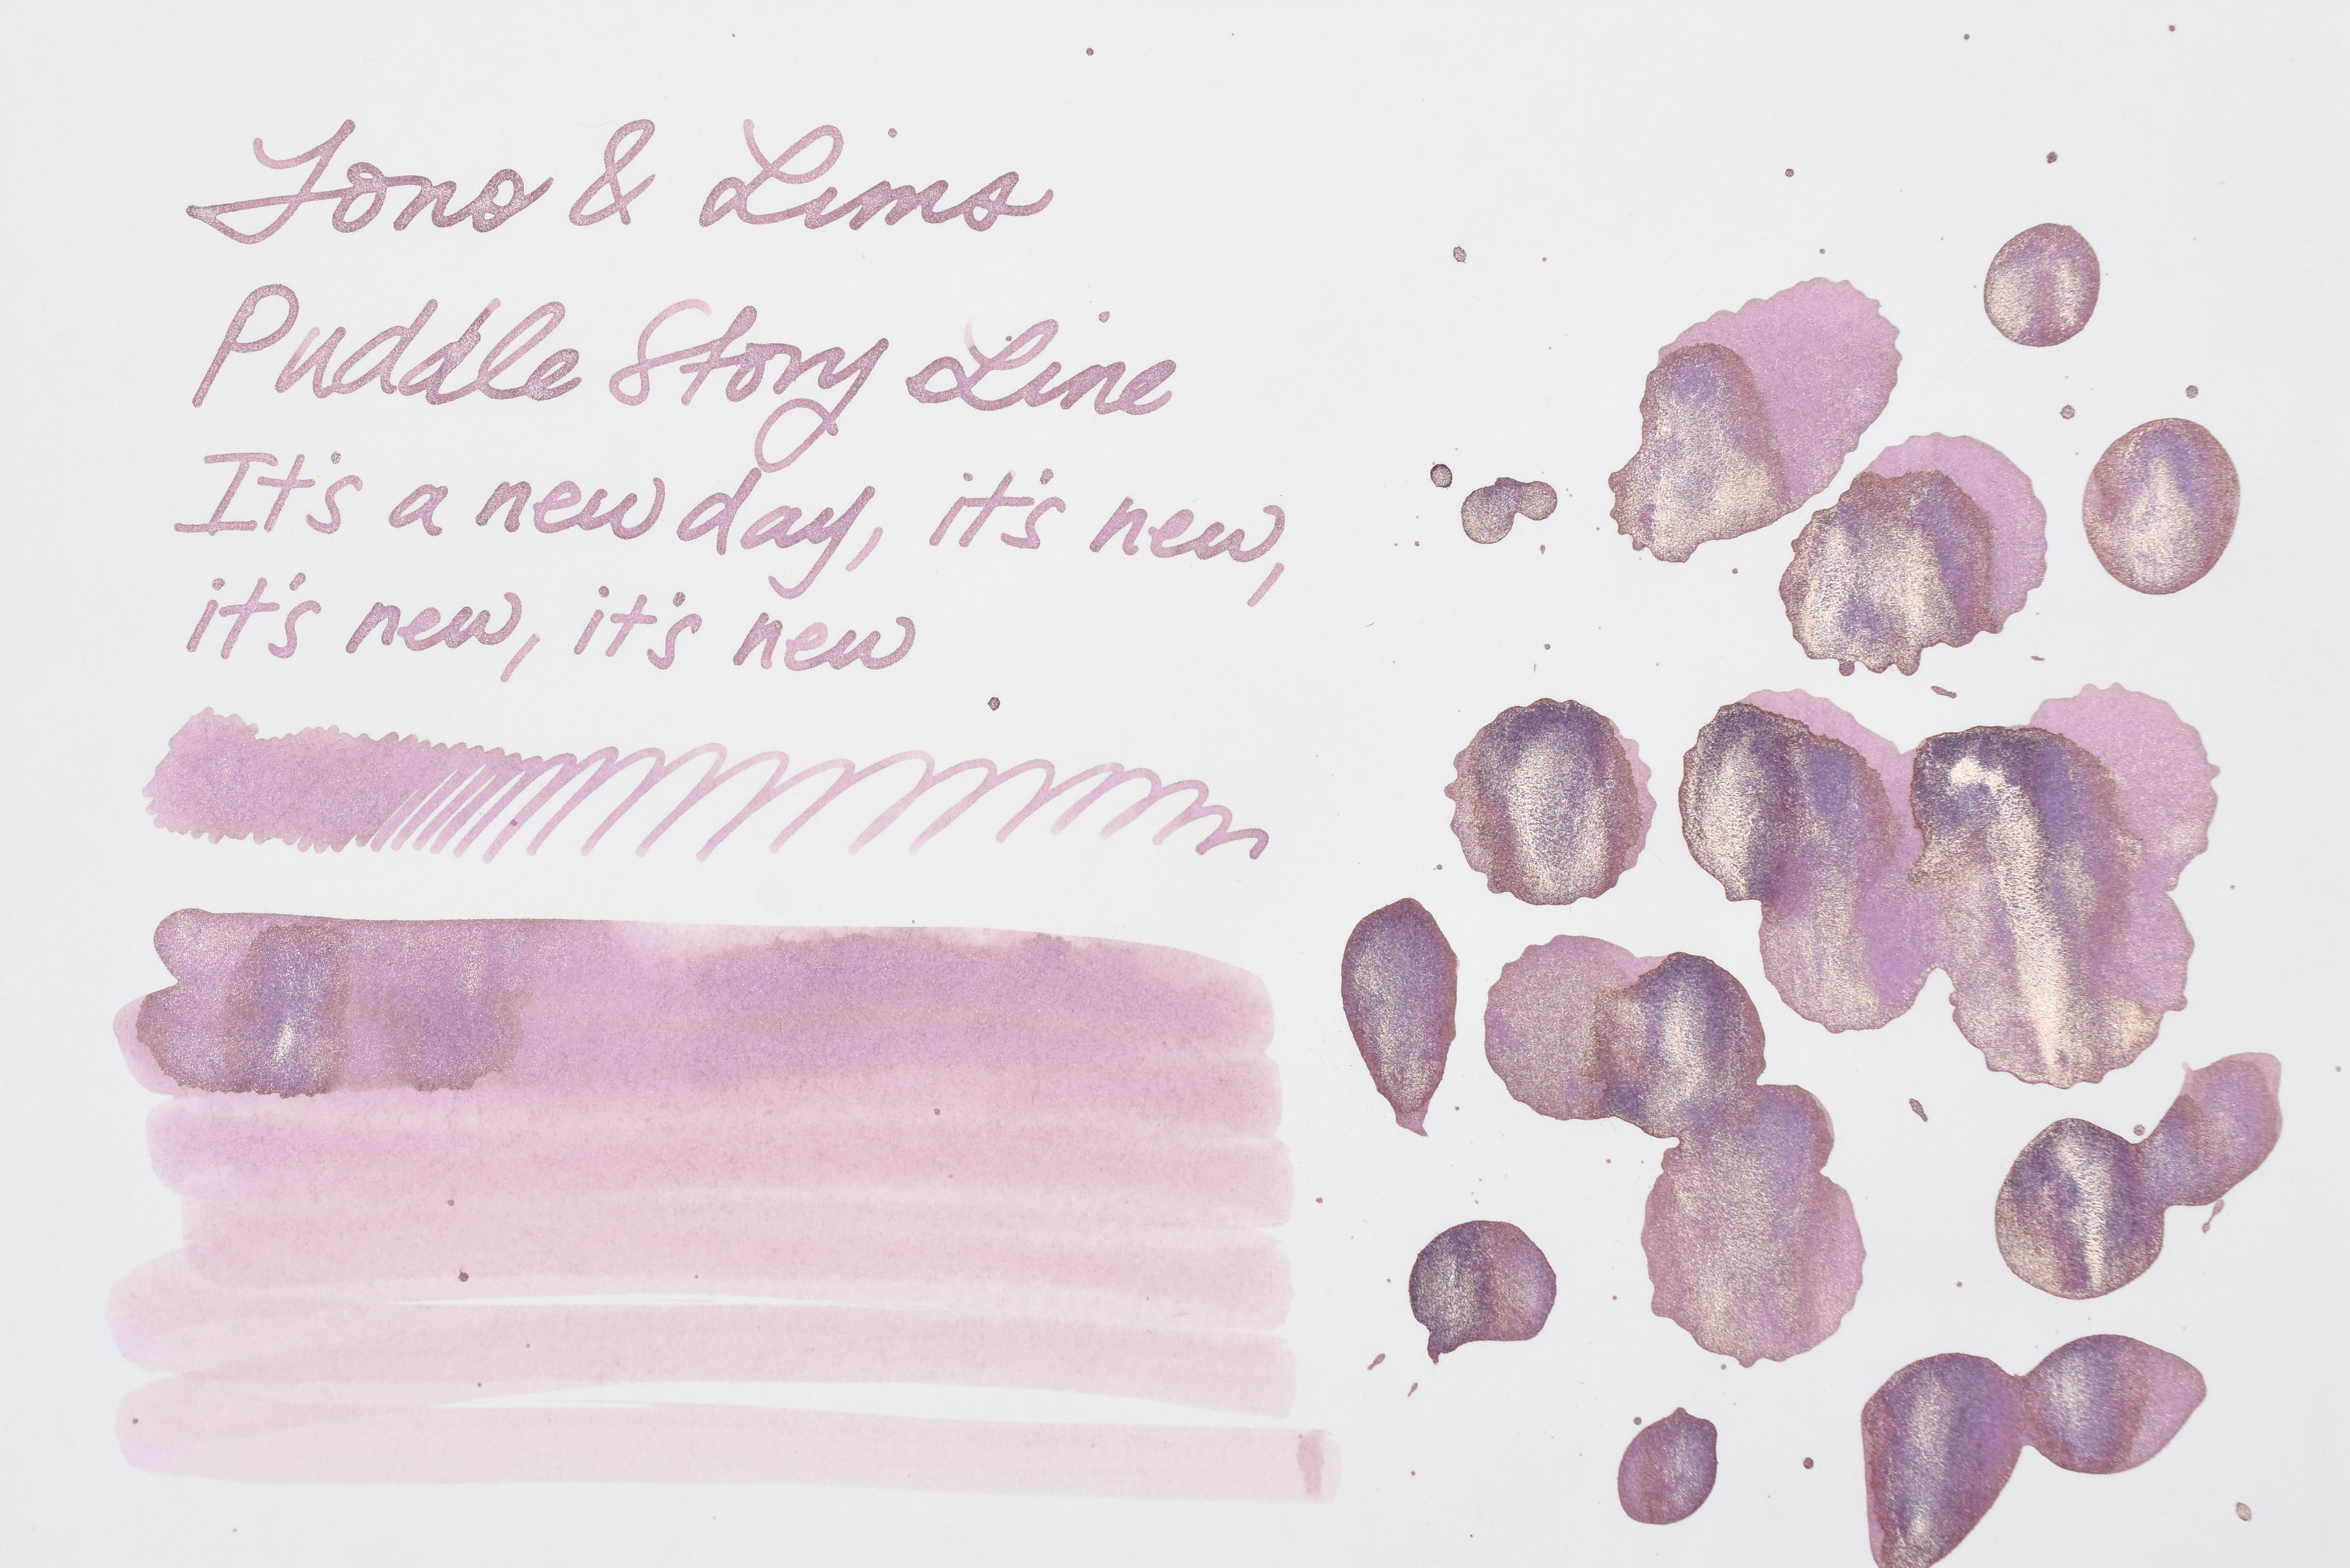 Tono & Lims
Puddle Story Line
It's a new day, it's new,
it's new, it's new